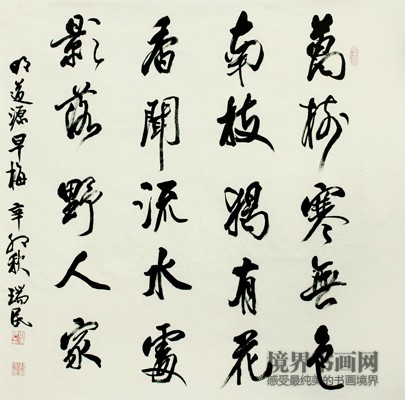 萬樹寒無色
南枝獨有花
香聞流水處
影落野人家
明道源早梅辛卯秋瑞民
境界书画网
感受最纯美的书画境界